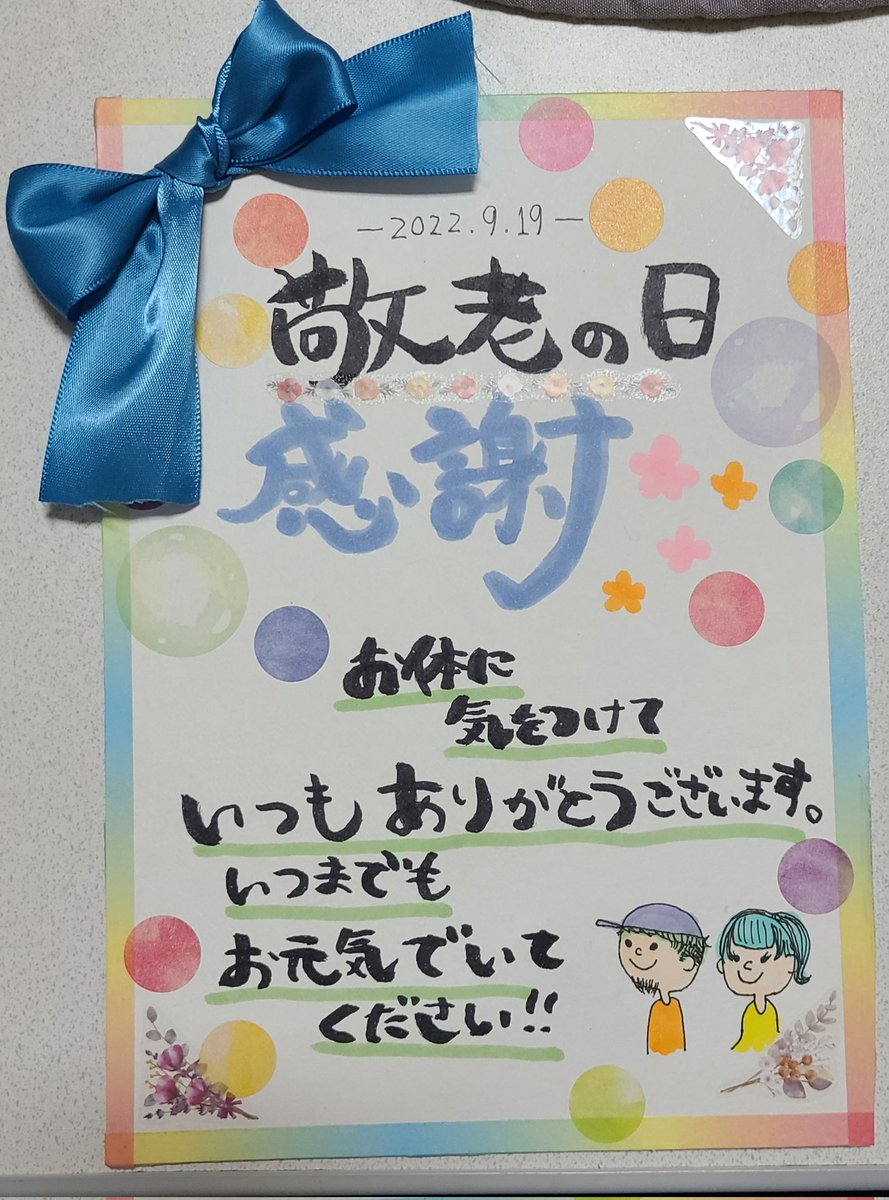 —2022.9.19—
敬老の日
感謝
お体に
気をつけて
いつもありがとうございます。
いつまでも
お元気でいて
ください!!